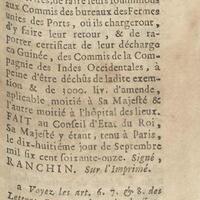 aux Commis des bureaux des Fermes
unies des Ports, où ils chargeront,
d'y faire leur retour, & de ra-
porter certificat de leur décharge
en Guinée, des Commis de la Com
pagnie des Indes Occidentales, à
peine d'être déchûs de ladite exem-
ption & de 3000. liv. d'amende,
aplicable moitié à Sa Majesté &
l'autre moitié à l'hôpital des lieux.
FAIT au Conseil d'Etat du Roi,
Sa Majesté y étant, tenu à Paris,
le dix-huitiéme jour de Septembre
mil six cent soixante-onze. Signé,
RANCHIN. Sur l'Imprimé.
a Voyez les art. 6. 7. & 8. des